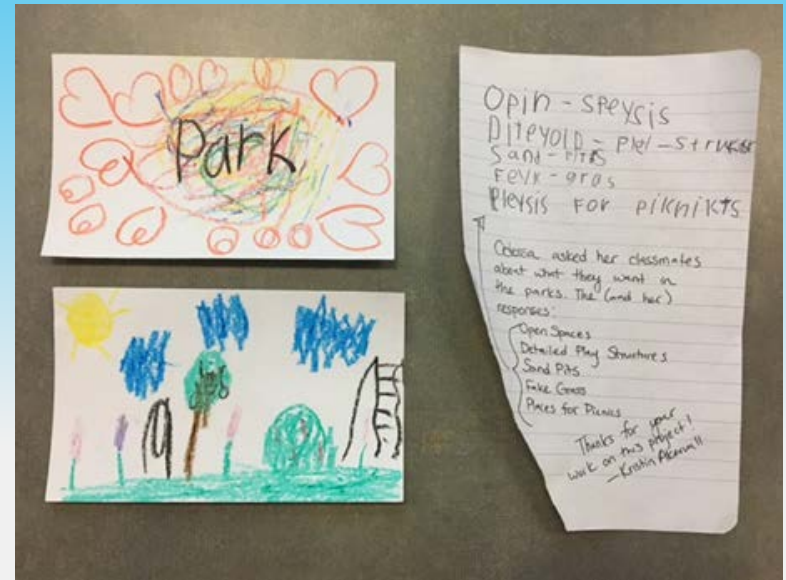 Park
Opin - speysis
Diteyold - plei - strukshr
Sand - pits
Feyk - gras
Pleysis for piknikts
asked her classmates
about what they want in
the parks. The (and her)
responses:
Open Spaces
Detailed Play Structures
Sand Pits
Fake Grass
Places for Picnics
Thanks for your
work on this project!
- Kristin